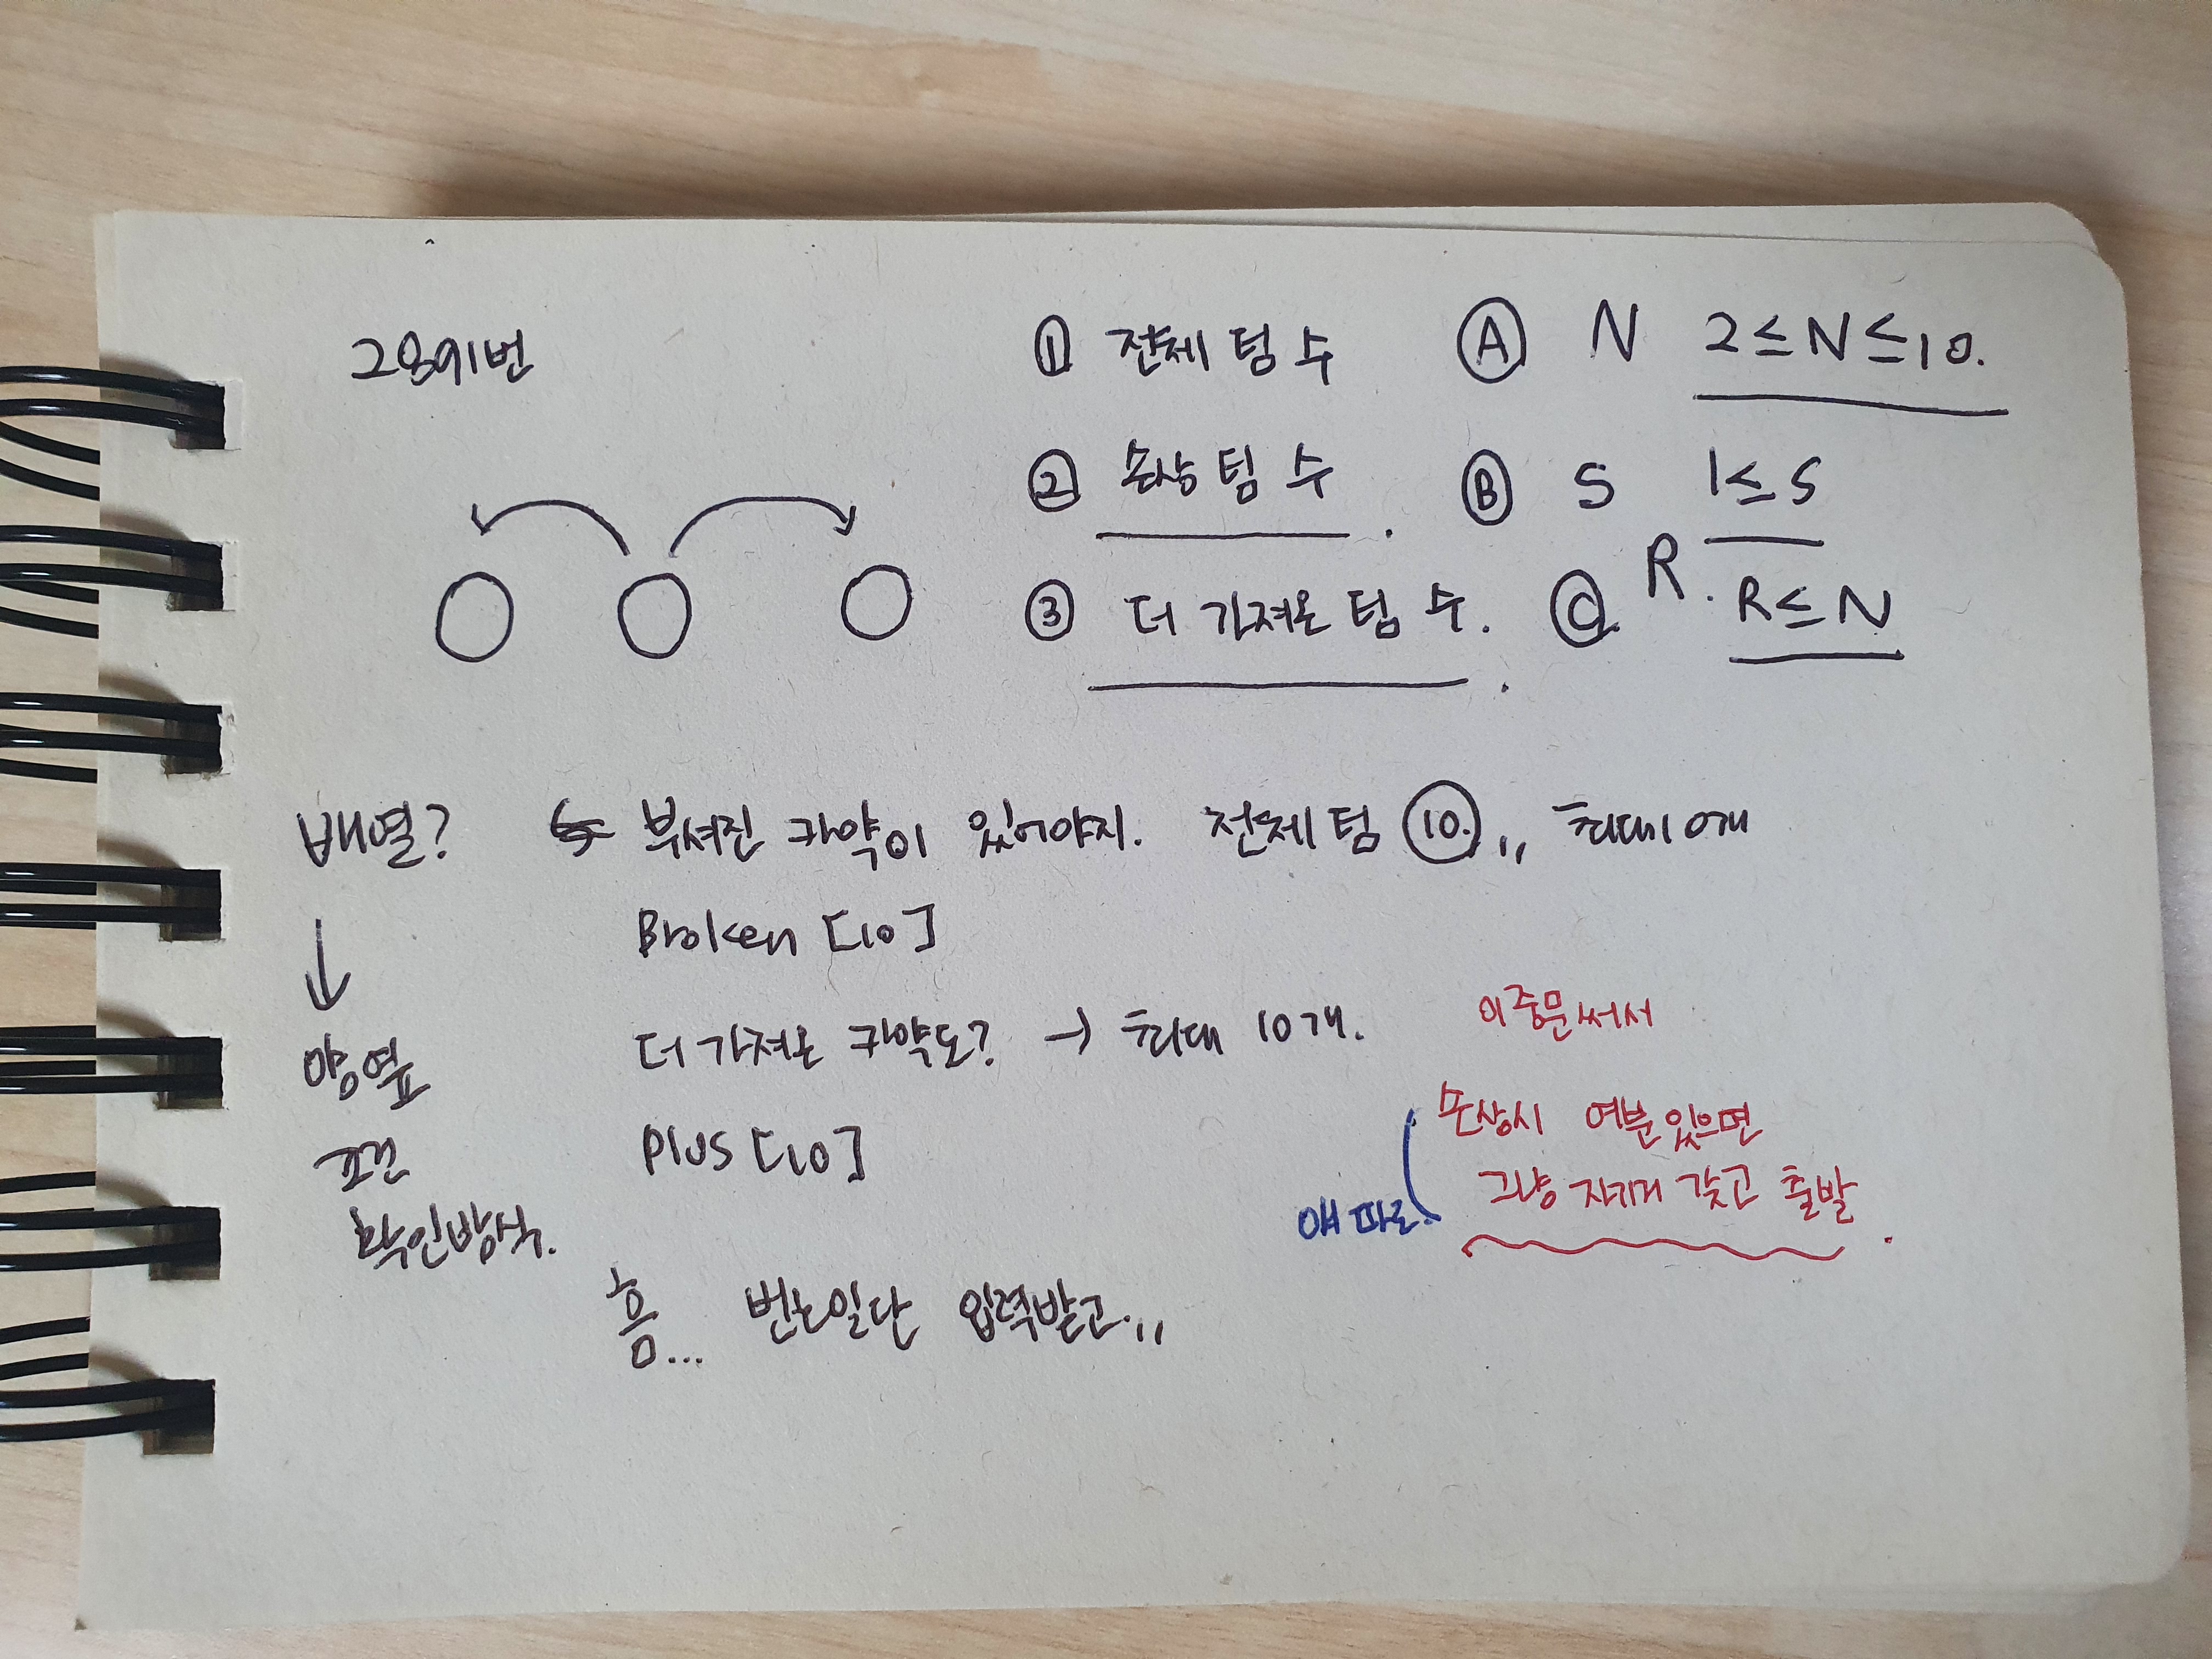 2891번
① 전체 팀 수 Ⓐ N 2≤N≤10.
② 손상 팀 수. Ⓑ S 1≤S
③ 더 가져온 팀 수. Ⓒ R. R≤N
배열? 부셔진 카약이 있어야지. 전체 팀 ⑩,, 최대 10개
Broken [10]
↓
양옆 더 가져온 카약도? → 최대 10개.
Plus [10]
확인방식.
흠... 번호일단 입력받고,,
이중문써서
손상시 여분있으면
그냥 자기거 갖고 출발.
얘 따로.